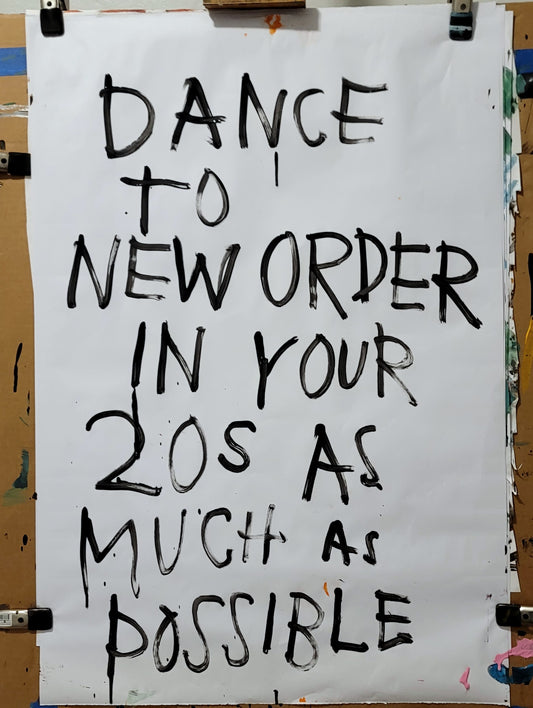 DANCE
TO
NEW ORDER
IN YOUR
20s AS
MUCH AS
POSSIBLE